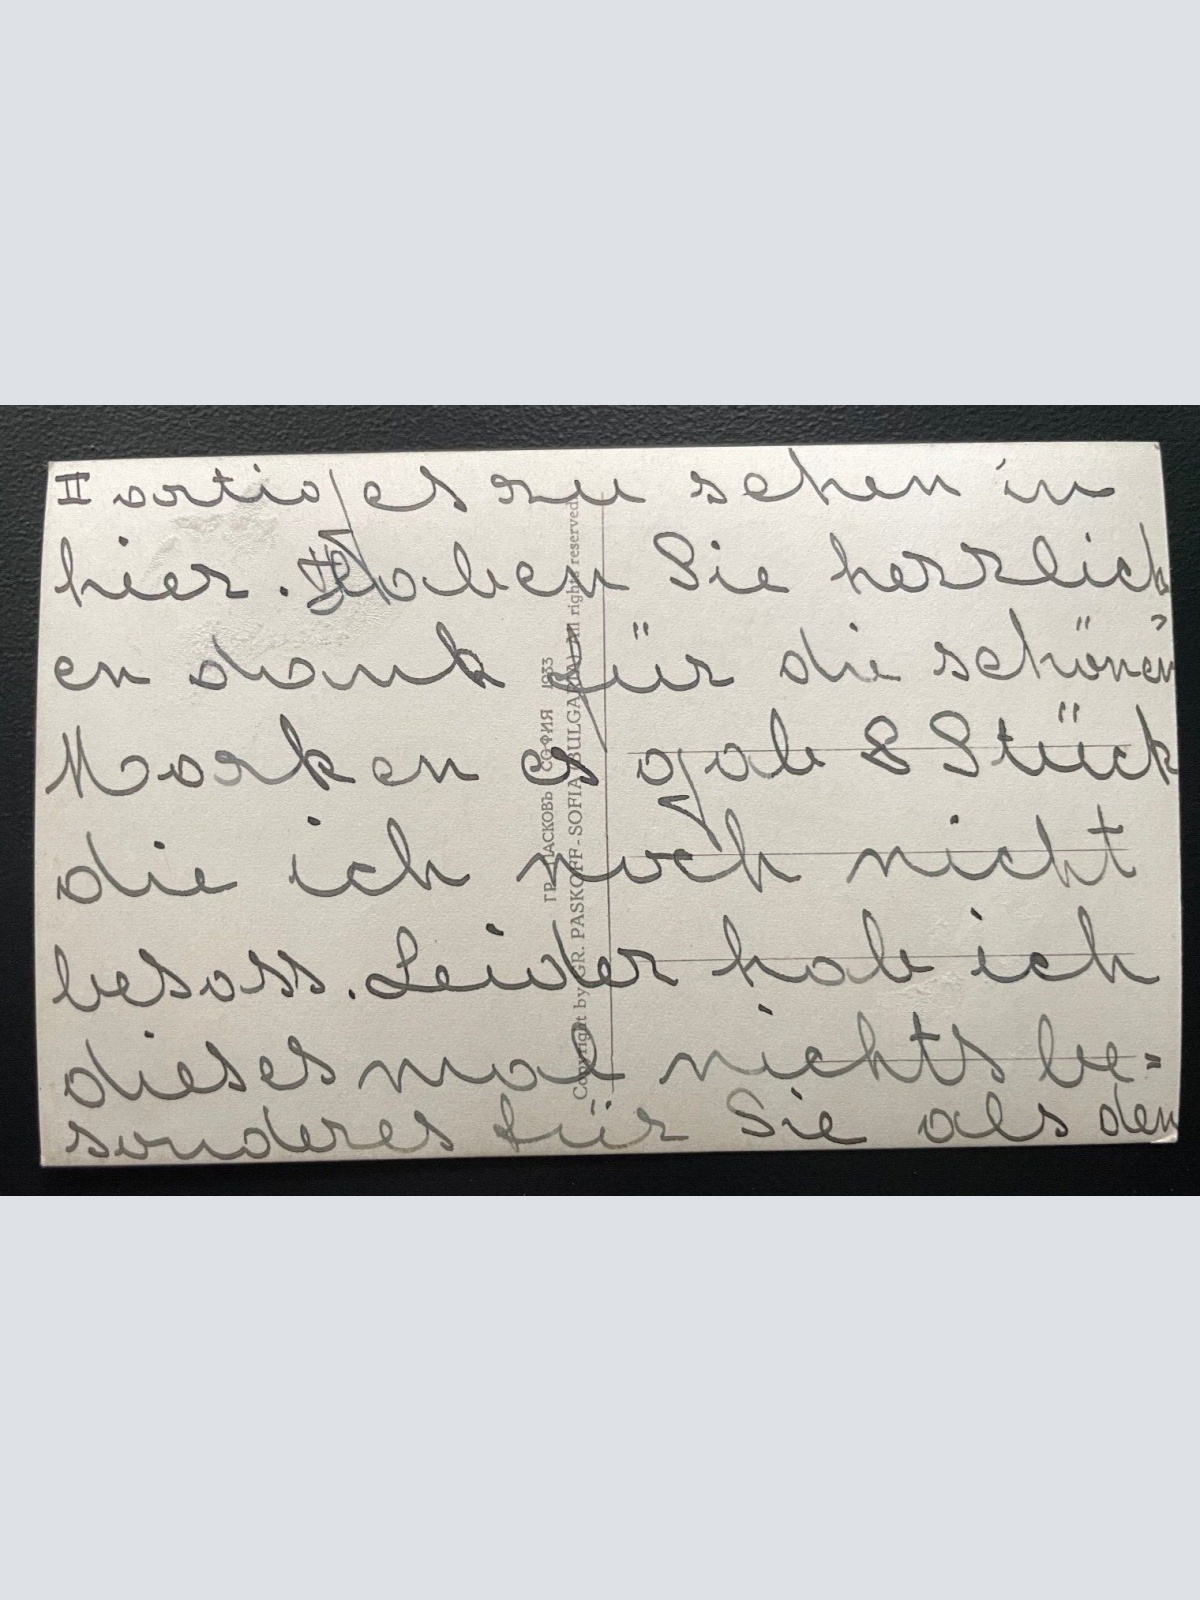 II artiges zu sehen in
hier. Haben Sie herrlich
en dank für die schönen
Marken es gab 8 Stück
die ich noch nicht
besass. Leider hab ich
dieses mal nichts be=
sonderes für Sie als den
ГР. ПАСКОВЪ СОФИЯ 1933
Copyright by GR. PASKOFF-SOFIA (BULGARIA) All rights reserved